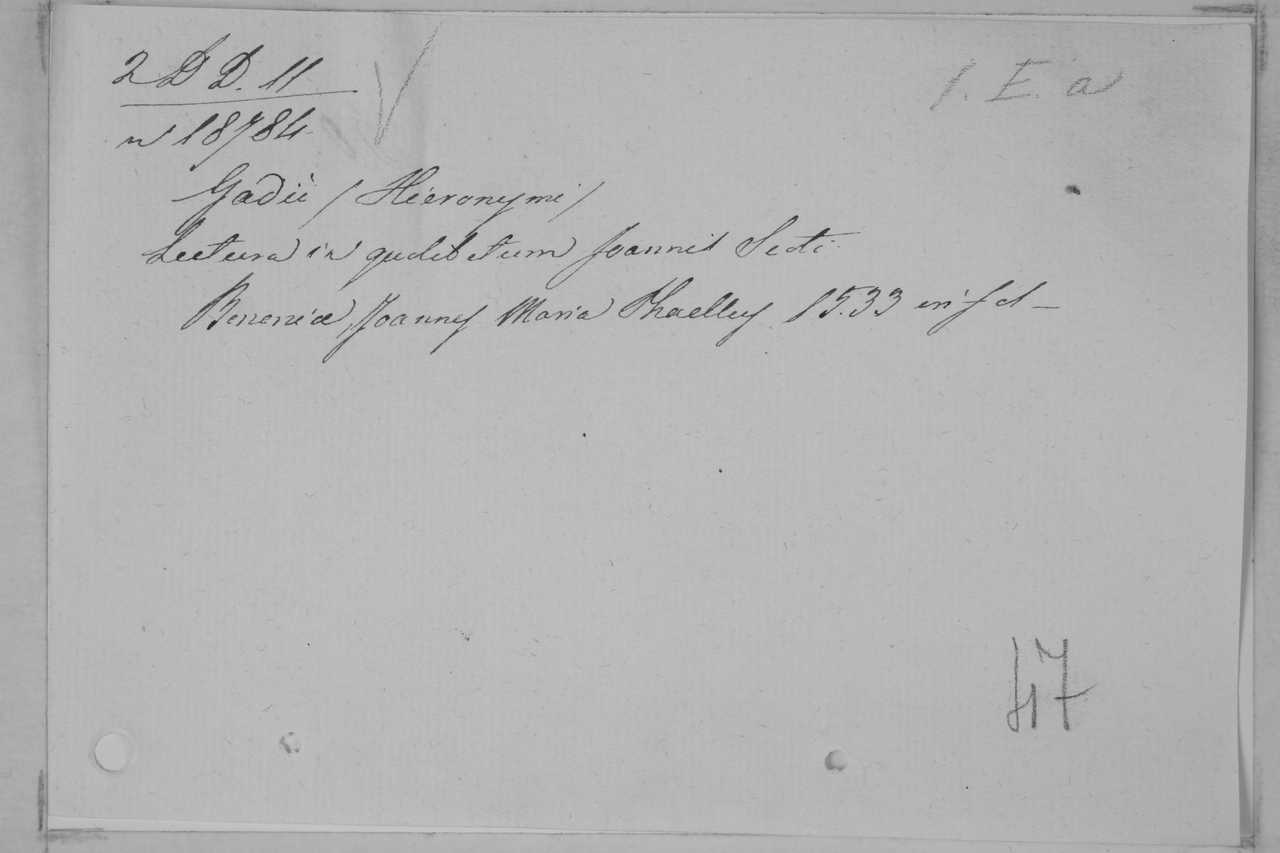 2 D D. 11
1. E. a
n 18784
Gadii / Hieronymi /
Lectura in qudibetum Joannis Scoti
Bononiæ Joannes Maria Phaelley 1533 in fol
47